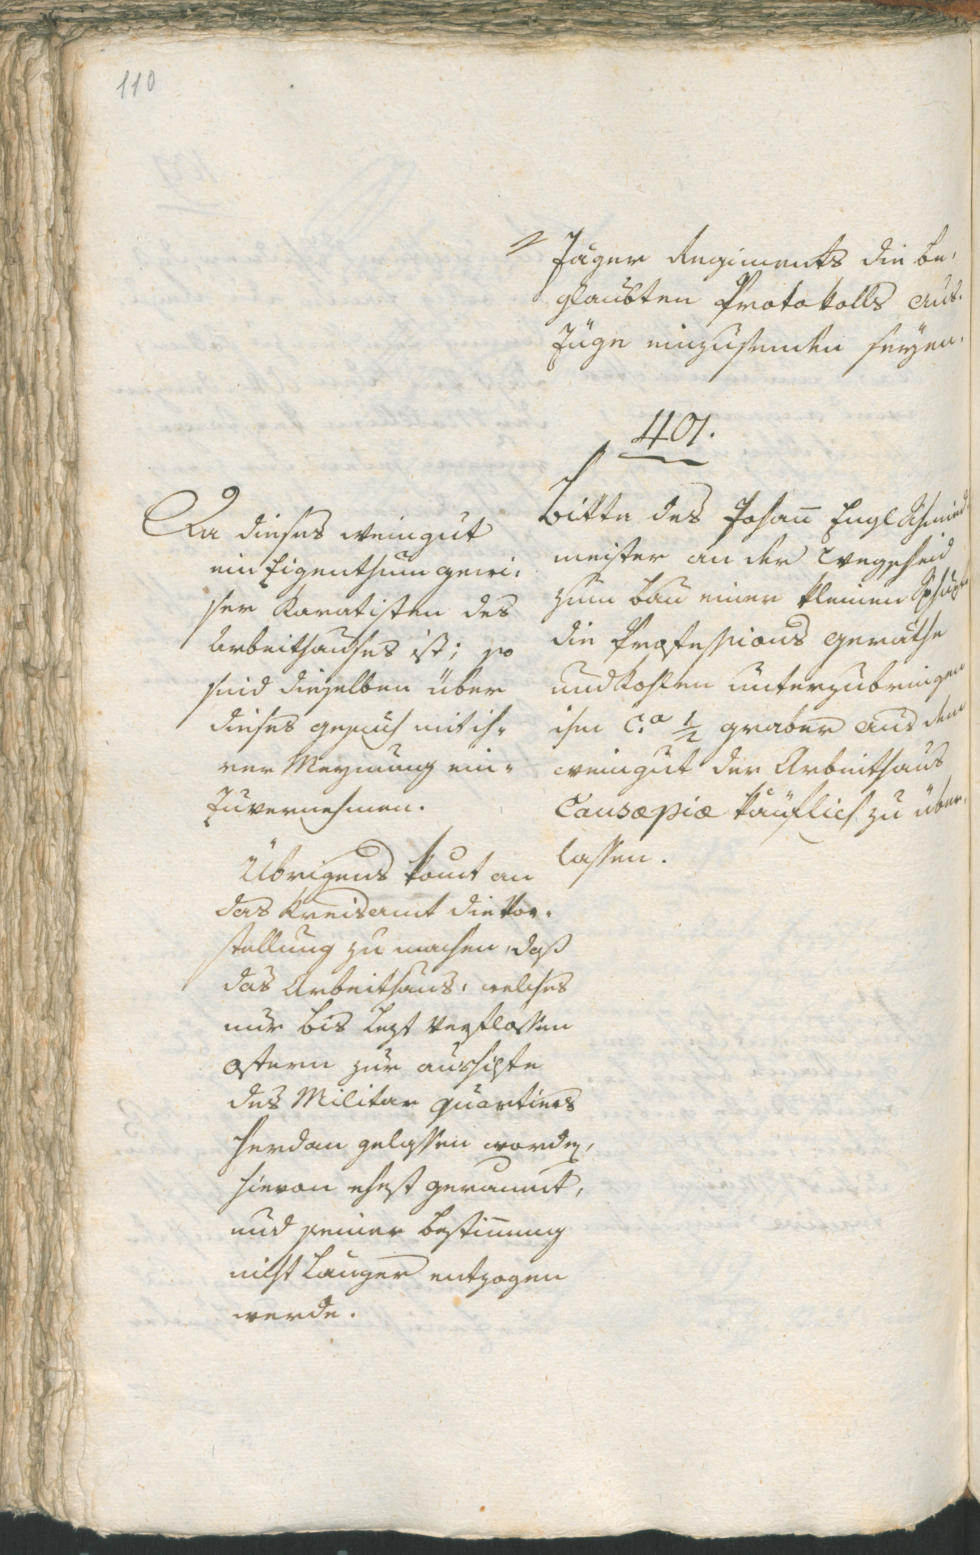 110
Jäger Regiments die be,
glaubten Protokolls aus,
züge einzusenden seyen.
401.
Bitte des Johann Engl Schmied
meister an der Wegscheid
zum bau einer kleinen Schupfe
die Professions geräthe
und kohlen unterzubringen
ihm C.a ½ graber aus dem
weingut der Arbeitshaus
Causæpiæ käuflich zu über,
lassen.
Da dieses weingut
ein Eigenthum gewi,
ser Karatisten des
Arbeitshauses ist; so
sind dieselben über
dieses gesuch mit ih,
rer Meynung ein,
zuvernehmen.
Übrigens komt an
das Kreisamt die Vor,
stellung zu machen, daß
das Arbeitshaus, welches
nur bis lezt verflossen
ostern zur aushilfe
des Militar quartiers
herdan gelassen worden,
hievon ehest geraumt,
und seiner bestimung
nicht langer entzogen
werde.